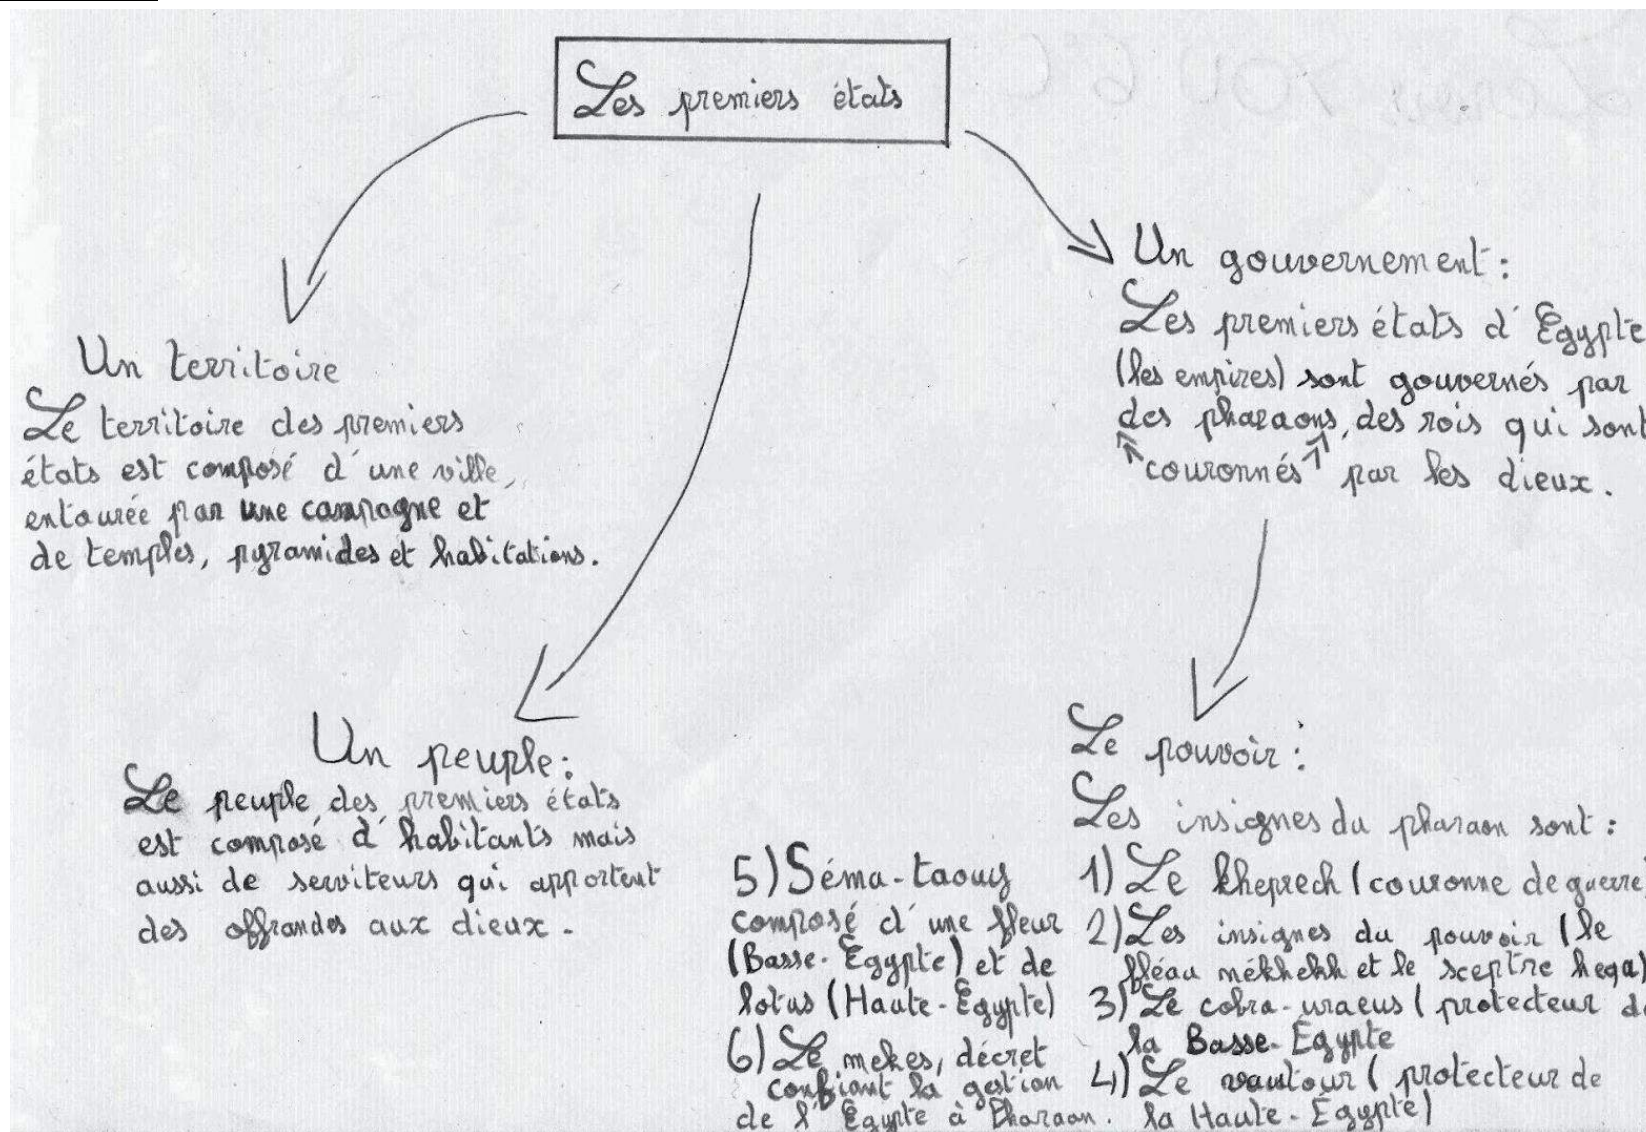 Les premiers états
Un territoire
Le territoire des premiers
états est composé d'une ville,
entourée par une campagne et
de temples, pyramides et habitations.
Un peuple:
Le peuple des premiers états
est composé d'habitants mais
aussi de serviteurs qui apportent
des offrandes aux dieux.
Un gouvernement:
Les premiers états d'Egypte
(les empires) sont gouvernés par
des pharaons, des rois qui sont
couronnés par les dieux.
Le pouvoir:
Les insignes du pharaon sont:
1) Le kheprech (couronne de guerre
2) Les insignes du pouvoir (le
fléau mékhekh et le sceptre heqa)
3) Le cobra-uraeus (protecteur de
la Basse-Égypte
4) Le vautour (protecteur de
la Haute-Égypte)
5) Séma-taouy
composé d'une fleur
(Basse-Égypte) et de
lotus (Haute-Égypte)
6) Le mekes, décret
confiant la gestion
de l'Egypte à Pharaon.